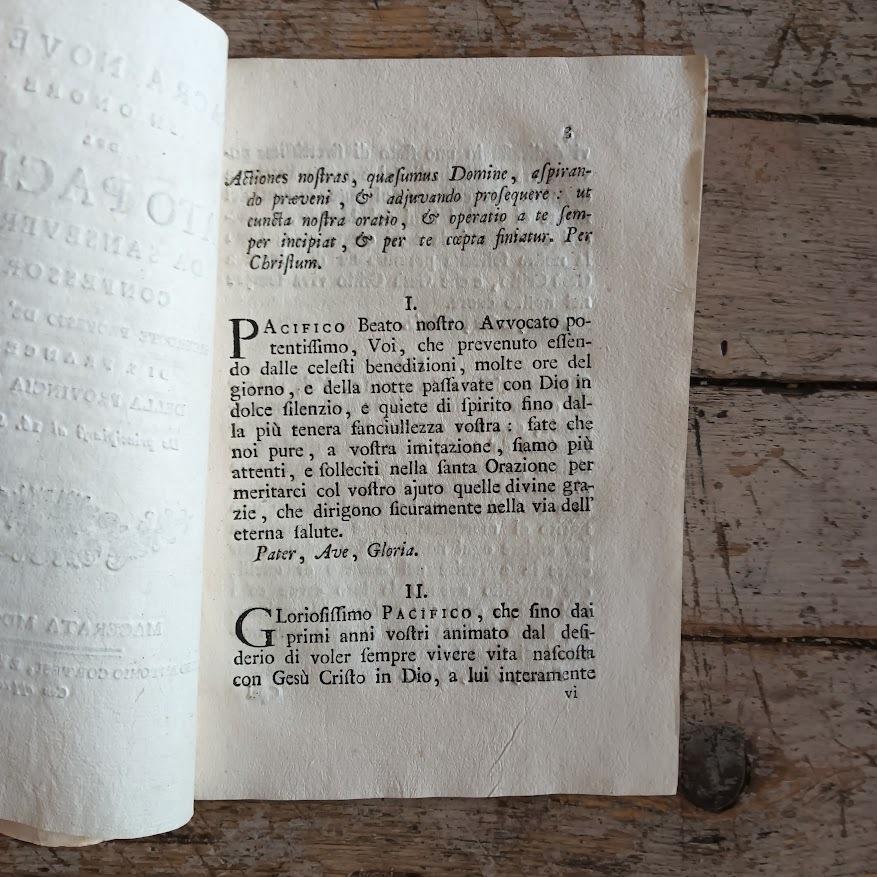 3
Actiones noſtras, quæſumus Domine, aſpiran-
do præveni, & adjuvando proſequere: ut
cuncta noſtra oratio, & operatio a te ſem-
per incipiat, & per te cœpta finiatur. Per
Chriſtum.
I.
PACIFICO Beato noſtro Avvocato po-
tentiſſimo, Voi, che prevenuto eſſen-
do dalle celeſti benedizioni, molte ore del
giorno, e della notte paſſavate con Dio in
dolce ſilenzio, e quiete di ſpirito fino dal-
la più tenera fanciullezza voſtra: fate che
noi pure, a voſtra imitazione, ſiamo più
attenti, e ſolleciti nella ſanta Orazione per
meritarci col voſtro ajuto quelle divine gra-
zie, che dirigono ſicuramente nella via dell'
eterna ſalute.
Pater, Ave, Gloria.
II.
GLorioſiſſimo PACIFICO, che ſino dai
primi anni voſtri animato dal deſi-
derio di voler ſempre vivere vita naſcoſta
con Gesù Criſto in Dio, a lui interamente
vi